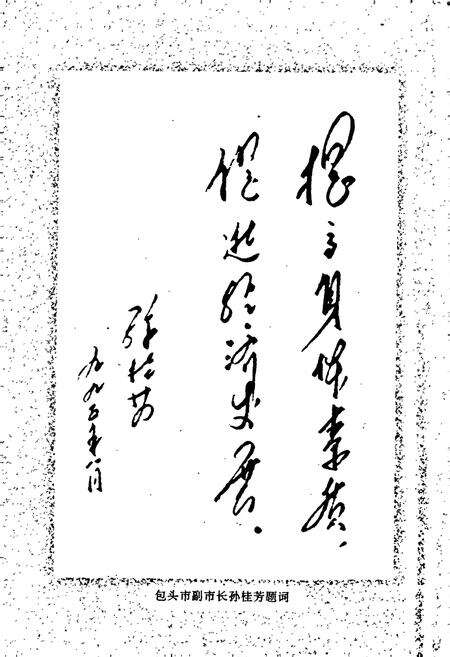 提高身体素质，
促进经济发展。
孙桂芳
九九五年一月
包头市副市长孙桂芳题词